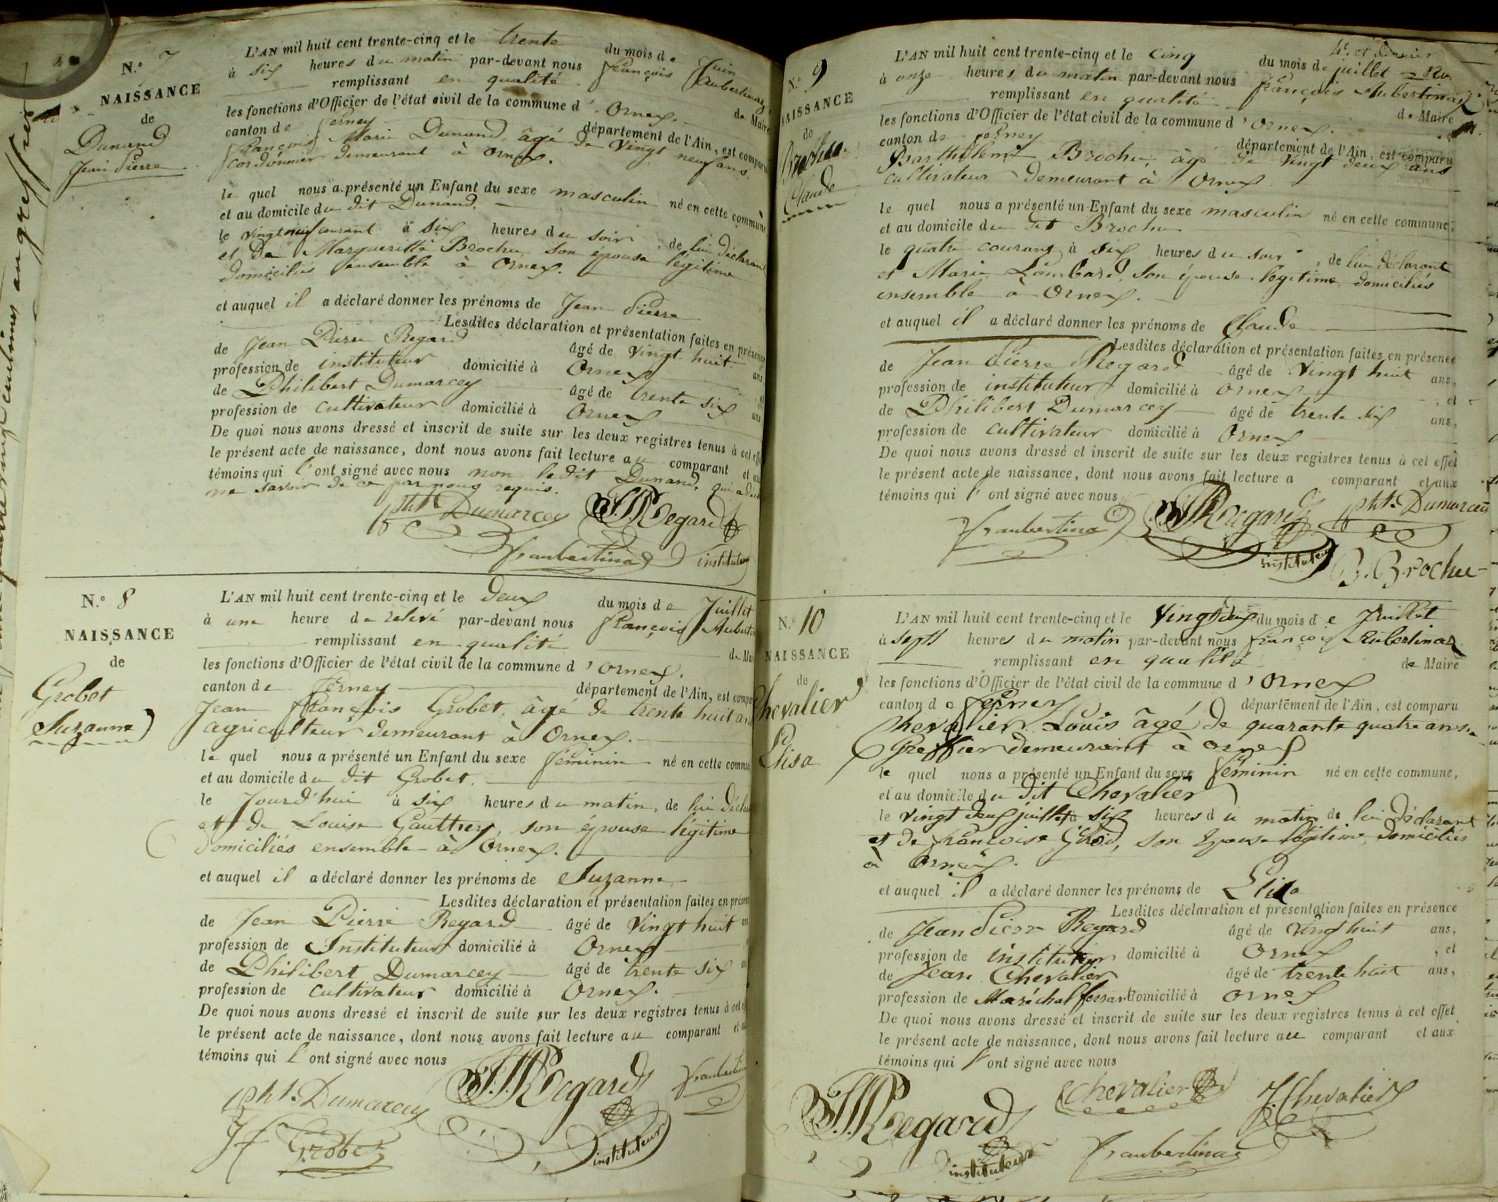 N.° 7
NAISSANCE
de
Dunand
Jean Pierre
L'AN mil huit cent trente-cinq et le trente du mois de Juin
à six heures du matin par-devant nous françois Aubertinaz
remplissant en qualité de Maire
les fonctions d'Officier de l'état civil de la commune d'Ornex.
canton de ferney département de l'Ain, est comparu
françois Marie Dunand âgé de Vingt neuf ans
Cordonnier demeurant à Ornex.
le quel nous a présenté un Enfant du sexe masculin né en cette commune
et au domicile du dit Dunand.
le Vingt neuf courant à six heures du soir, de lui déclarant
et de Marguerite Brochu son épouse légitime
domiciliés ensemble à Ornex.
et auquel il a déclaré donner les prénoms de Jean Pierre
Lesdites déclaration et présentation faites en présence
de Jean Pierre Regard âgé de Vingt huit ans
profession de instituteur domicilié à Ornex
de Philibert Dumarcey âgé de trente six ans
profession de cultivateur domicilié à Ornex
De quoi nous avons dressé et inscrit de suite sur les deux registres tenus à cet effet
le présent acte de naissance, dont nous avons fait lecture au comparant et aux
témoins qui l'ont signé avec nous non le dit Dunand, qui a
ne savoir de ce par nous requis.
Pht. Dumarcey JP Regard
f aubertinaz instituteur
N.° 8
NAISSANCE
de
Grobet
Suzanne
L'AN mil huit cent trente-cinq et le deux du mois de Juillet
à une heure de relevé par-devant nous françois
remplissant en qualité de Maire
les fonctions d'Officier de l'état civil de la commune d'Ornex.
canton de ferney département de l'Ain, est comparu
Jean françois Grobet, âgé de trente huit ans
agriculteur demeurant à Ornex.
le quel nous a présenté un Enfant du sexe féminin né en cette commune
et au domicile du dit Grobet.
le Jourd'hui à six heures du matin, de lui déclarant
et de Louise Gauthey, son épouse légitime
domiciliés ensemble à Ornex.
et auquel il a déclaré donner les prénoms de Suzanne
Lesdites déclaration et présentation faites en présence
de Jean Pierre Regard âgé de Vingt huit
profession de Instituteur domicilié à Ornex
de Philibert Dumarcey âgé de trente six
profession de cultivateur domicilié à Ornex.
De quoi nous avons dressé et inscrit de suite sur les deux registres tenus à cet effet
le présent acte de naissance, dont nous avons fait lecture au comparant et aux
témoins qui l'ont signé avec nous
Pht. Dumarcey JP Regard f aubertinaz
Grobet instituteur
N.° 9
NAISSANCE
de
Claude
L'AN mil huit cent trente-cinq et le cinq du mois de juillet
à onze heures du matin par-devant nous françois Aubertinaz
remplissant en qualité de Maire
les fonctions d'Officier de l'état civil de la commune d'Ornex.
canton de ferney département de l'Ain, est comparu
Barthélemi Brochu, âgé de Vingt deux ans
cultivateur demeurant à Ornex
le quel nous a présenté un Enfant du sexe masculin né en cette commune,
et au domicile du dit Brochu
le quatre courant à six heures du soir, de lui déclarant
et Marie Lombard son épouse légitime domiciliés
ensemble à Ornex.
et auquel il a déclaré donner les prénoms de Claude
Lesdites déclaration et présentation faites en présence
de Jean Pierre Regard âgé de Vingt huit ans,
profession de instituteur domicilié à Ornex, et
de Philibert Dumarcey âgé de trente six ans,
profession de cultivateur domicilié à Ornex
De quoi nous avons dressé et inscrit de suite sur les deux registres tenus à cet effet
le présent acte de naissance, dont nous avons fait lecture a comparant et aux
témoins qui l'ont signé avec nous
f aubertinaz JP Regard Pht. Dumarcey
instituteur B. Brochu
N.° 10
NAISSANCE
de
Chevalier
Elisa
L'AN mil huit cent trente-cinq et le Vingt deux du mois de Juillet
à sept heures du matin par-devant nous françois Aubertinaz
remplissant en qualité de Maire
les fonctions d'Officier de l'état civil de la commune d'Ornex
canton de ferney département de l'Ain, est comparu
Chevalier Louis âgé de quarante quatre ans
Greffier demeurant à Ornex
le quel nous a présenté un Enfant du sexe féminin né en cette commune,
et au domicile du dit Chevalier
le Vingt deux juillet à six heures du matin de lui déclarant
et de françoise Girod, son épouse légitime domiciliés
à Ornex.
et auquel il a déclaré donner les prénoms de Elisa
Lesdites déclaration et présentation faites en présence
de Jean Pierre Regard âgé de Vingt huit ans,
profession de instituteur domicilié à Ornex, et
de Jean Chevalier âgé de trente huit ans,
profession de Maréchal ferrant domicilié à Ornex
De quoi nous avons dressé et inscrit de suite sur les deux registres tenus à cet effet
le présent acte de naissance, dont nous avons fait lecture au comparant et aux
témoins qui l'ont signé avec nous
JP Regard Chevalier J Chevalier
instituteur f aubertinaz